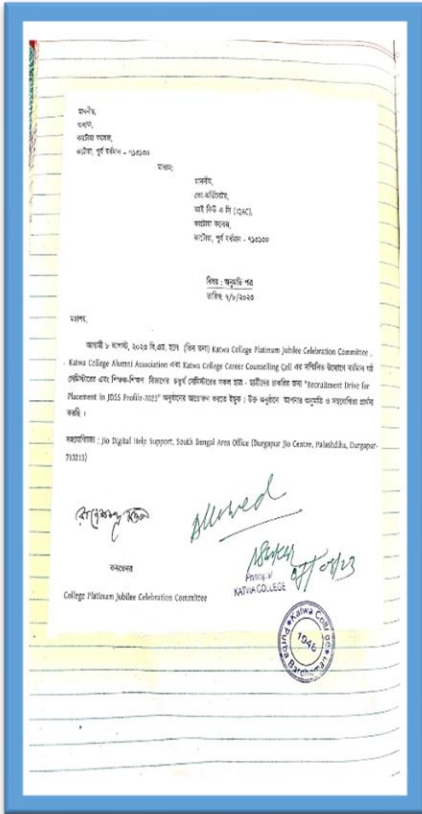 মাননীয়,
অধ্যক্ষ,
কাটোয়া কলেজ,
কাটোয়া, পূর্ব বর্ধমান - ৭১৩১৩০
মাধ্যম:
মাননীয়,
কো-অর্ডিনেটর,
আই কিউ এ সি (IQAC),
কাটোয়া কলেজ,
কাটোয়া, পূর্ব বর্ধমান - ৭১৩১৩০
বিষয় : অনুমতি পত্র
তারিখ: ৭/৮/২০২৩
মহাশয়,
আগামী ৮ আগস্ট, ২০২৩ বি.এম. হলে (তিন তলা) Katwa College Platinum Jubilee Celebration Committee ,
Katwa College Alumni Association এবং Katwa College Career Counselling Cell এর সম্মিলিত উদ্যোগে বর্তমান ষষ্ঠ
সেমিস্টারের এবং শিক্ষক-শিক্ষণ বিভাগের চতুর্থ সেমিস্টারের সকল ছাত্র - ছাত্রীদের চাকরির জন্য "Recruitment Drive for
Placement in JDSS Profile-2023" অনুষ্ঠানের আয়োজন করতে ইচ্ছুক। উক্ত অনুষ্ঠানে আপনার অনুমতি ও সহযোগিতা প্রার্থনা
করছি ।
সহযোগিতায় : Jio Digital Help Support, South Bengal Area Office (Durgapur Jio Centre, Palashdiha, Durgapur-
713213)
Allowed
কনভেনর
Principal
KATWA COLLEGE
College Platinum Jubilee Celebration Committee
Katwa College
1948
Purba Bardhaman